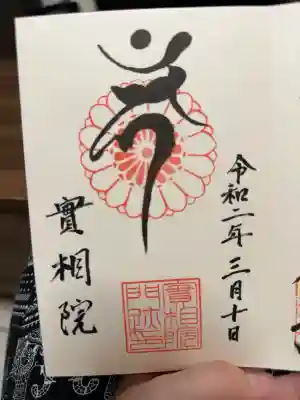 令和二年三月十日
實相院
實相院
門跡